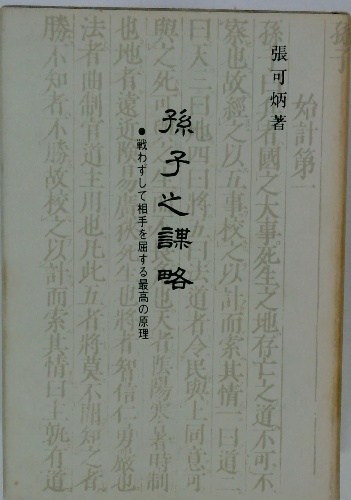 張可炳著
孫子之謀略
●戦わずして相手を屈する最高の原理
孫子
始計第一
孫子曰兵者國之大事死生之地存亡之道不可不
察也故經之以五事校之以計而索其情一曰道二
曰天三曰地四曰將五曰法道者令民與上同意可
與之死可
也天者陰陽寒暑時制
也地者遠近
智信仁勇嚴也
法者曲制官道主用也凡此五者將莫不聞知之者
勝不知者不勝故校之以計而索其情曰主孰有道